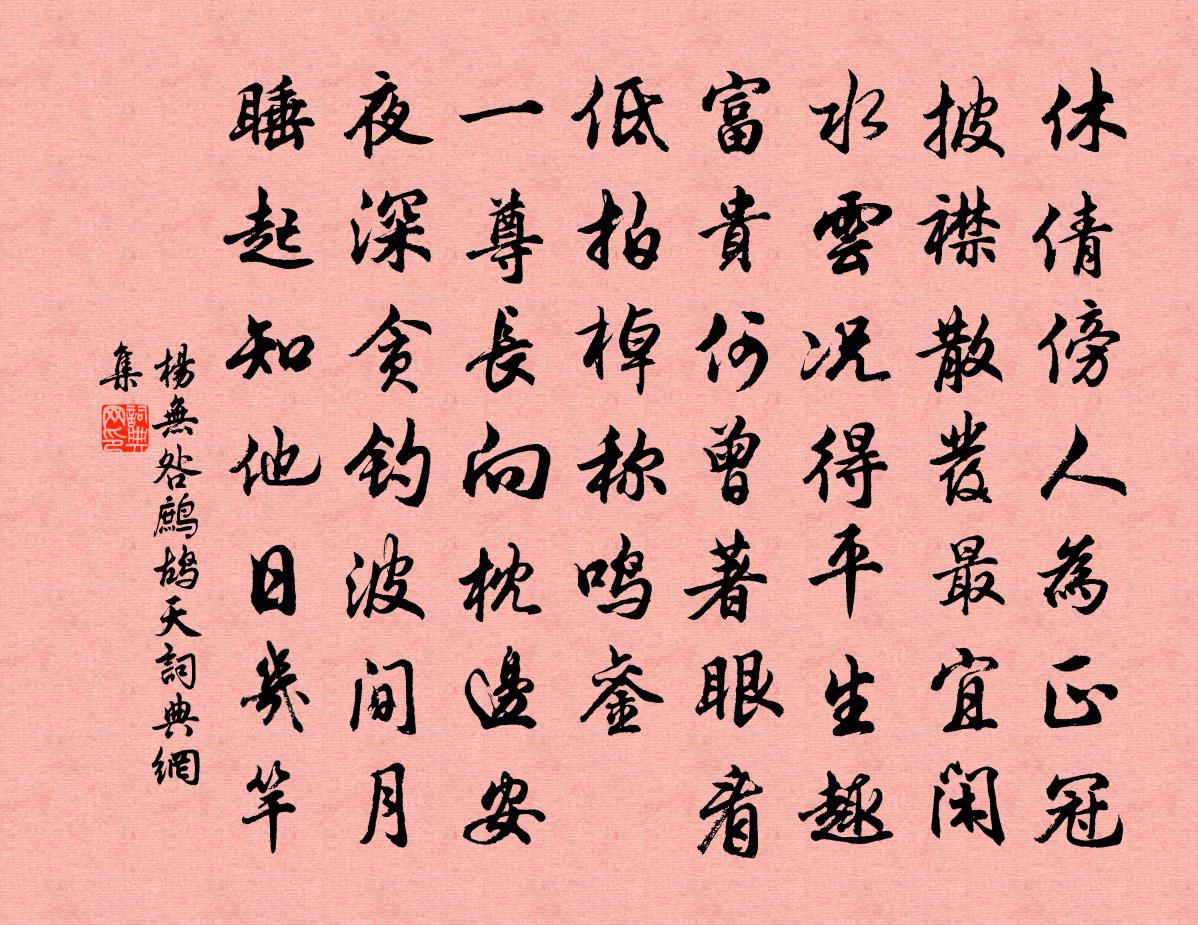 休倩傍人為正冠
披襟散發最宜閑
水雲況得平生趣
富貴何曾著眼看
低拍棹称鸣銮
一尊長向枕邊安
夜深貪釣波間月
睡起知他日幾竿
楊無咎鷓鴣天詞典網
集
詞典网印